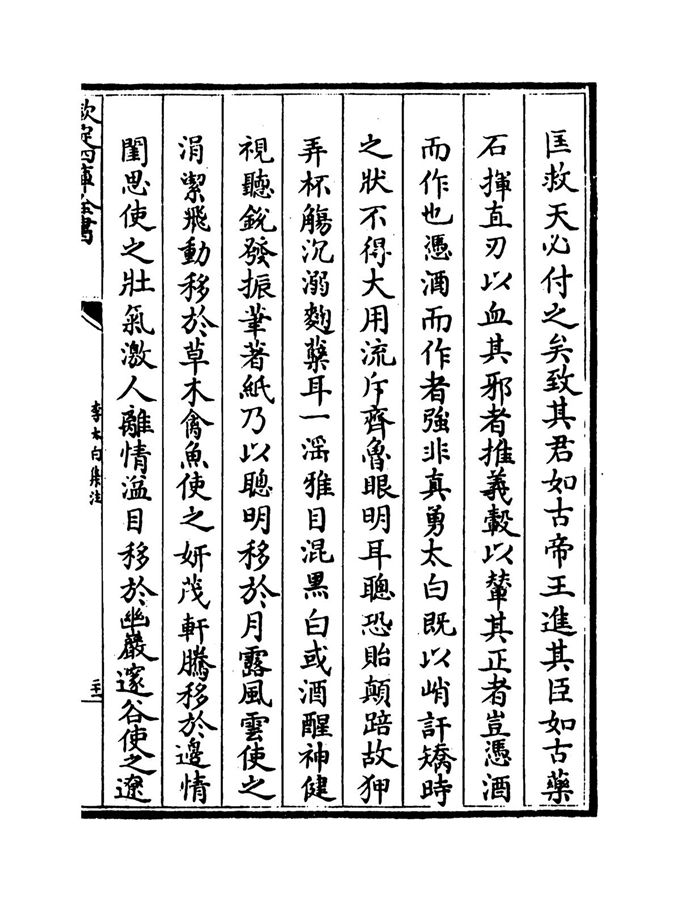 匡救天必付之矣致其君如古帝王進其臣如古藥
石揮直刃以血其邪者推義轂以輦其正者豈憑酒
而作也憑酒而作者強非真勇太白既以峭訐矯時
之狀不得大用流斥齊魯眼明耳聰恐貽顛踣故狎
弄杯觴沉溺麴糵耳一淫雅目混黑白或酒醒神健
視聽銳發振筆著紙乃以聰明移於月露風雲使之
涓潔飛動移於草木禽魚使之妍茂軒騰移於邊情
閨思使之壯氣激人離情溢目移於幽巖邃谷使之遼
欽定四庫全書
李太白集注